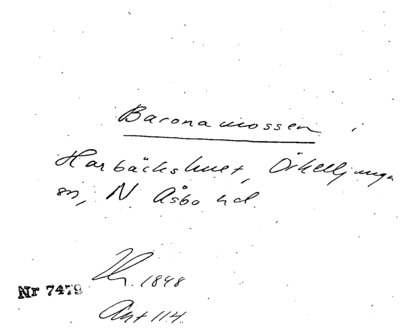 Baronamossen
Harbäckshult, Örkelljunga
sn, N Åsbo hd.
1848
Nr 7479
Ant 114.